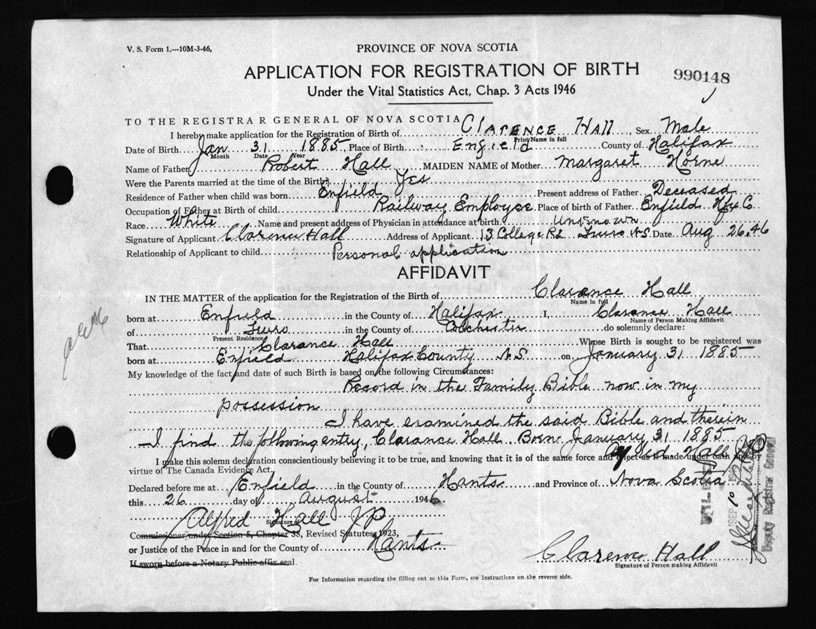 V. S. Form 1.—10M-3-46.
PROVINCE OF NOVA SCOTIA
APPLICATION FOR REGISTRATION OF BIRTH
990148
Under the Vital Statistics Act, Chap. 3 Acts 1946
TO THE REGISTRAR GENERAL OF NOVA SCOTIA
I hereby make application for the Registration of Birth of Clarence Hall, Sex Male
Print Name in full
Date of Birth Jan 31 1885, Place of Birth Enfield County of Halifax
Month Date Year
Name of Father Robert Hall MAIDEN NAME of Mother Margaret Horne
Were the Parents married at the time of the Birth Yes
Residence of Father when child was born Enfield Present address of Father Deceased
Occupation of Father at Birth of child Railway Employee Place of birth of Father Enfield Hfx Co.
Race White Name and present address of Physician in attendance at birth Unknown
Signature of Applicant Clarence Hall Address of Applicant 13 College Rd Truro N.S. Date Aug 26, 46
Relationship of Applicant to child Personal application
AFFIDAVIT
IN THE MATTER of the application for the Registration of the Birth of Clarence Hall
Name in full
born at Enfield in the County of Halifax I, Clarence Hall
Name of Person Making Affidavit
of Truro in the County of Colchester do solemnly declare:
Present Residence
That Clarance Hall Whose Birth is sought to be registered was
born at Enfield Halifax County N.S. on January 31 1885
My knowledge of the fact and date of such Birth is based on the following Circumstances:
Record in the Family Bible now in my
possession
I have examined the said Bible and therein
I find the following entry, Clarance Hall Born January 31 1885
Alfred Hall JP
I make this solemn declaration conscientiously believing it to be true, and knowing that it is of the same force and effect as if made under oath by
virtue of The Canada Evidence Act.
Declared before me at Enfield in the County of Hants and Province of Nova Scotia
this 26 day of August 1946
Alfred Hall JP
Signature
Commissioner under Section 5, Chapter 38, Revised Statutes, 1923,
or Justice of the Peace in and for the County of Hants
If sworn before a Notary Public affix seal
Clarence Hall
Signature of Person making Affidavit
For Information regarding the filling out of this Form, see Instructions on the reverse side.
FILED
SEP 10
Deputy Registrar General